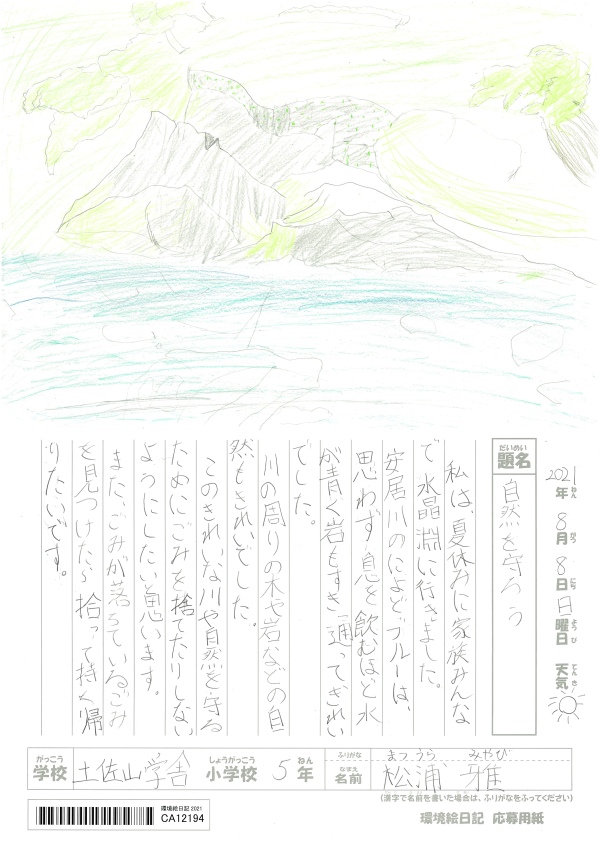 2021年ねん 8月がつ 8日にち 日曜日ようび 天気てんき
題名だいめい 自然を守ろう
私は、夏休みに家族みんな
で水晶淵に行きました。
安居川のによどブルーは、
思わず息を飲むほど水
が青く岩もすき通ってきれい
でした。
川の周りの木や岩などの自
然もきれいでした。
このきれいな川や自然を守る
ためにごみを捨てたりしない
ようにしたい思います。
また、ごみが落ちているごみ
を見つけたら拾って持く帰
りたいです。
がっこう 学校 土佐山学舎 しょうがっこう 小学校 5 ねん 年
ふりがな まつうら みやび
なまえ 名前 松浦 雅
(漢字で名前を書いた場合は、ふりがなをふってください)
環境絵日記 2021
CA12194
環境絵日記 応募用紙